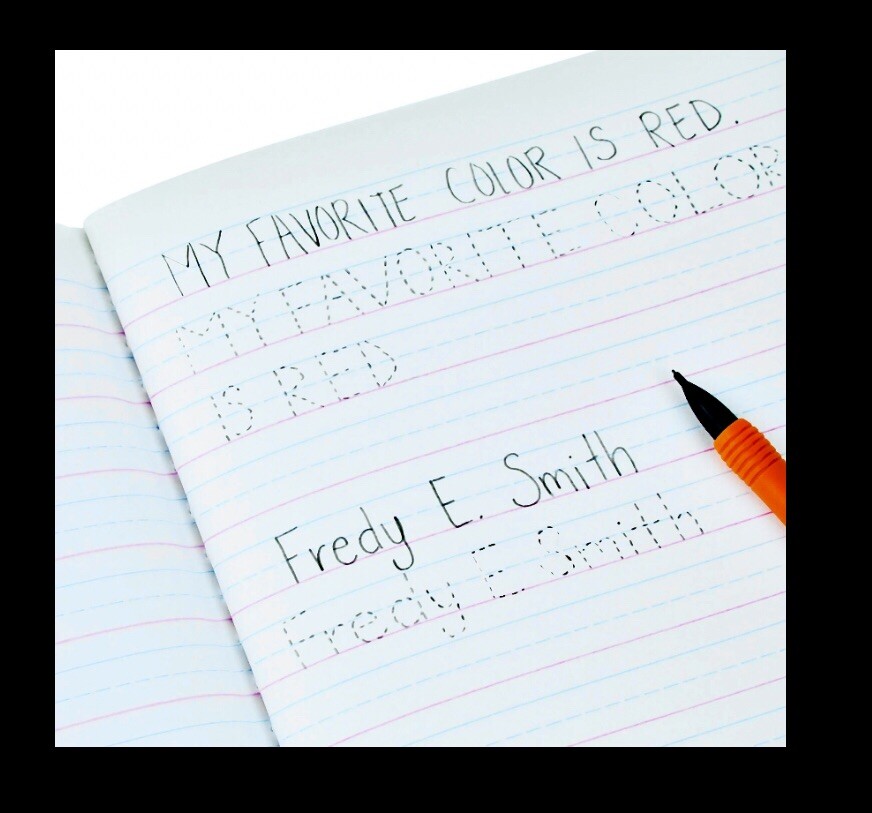 MY FAVORITE COLOR IS RED.
MY FAVORITE COLOR
IS RED
Fredy E. Smith
Fredy E Smith